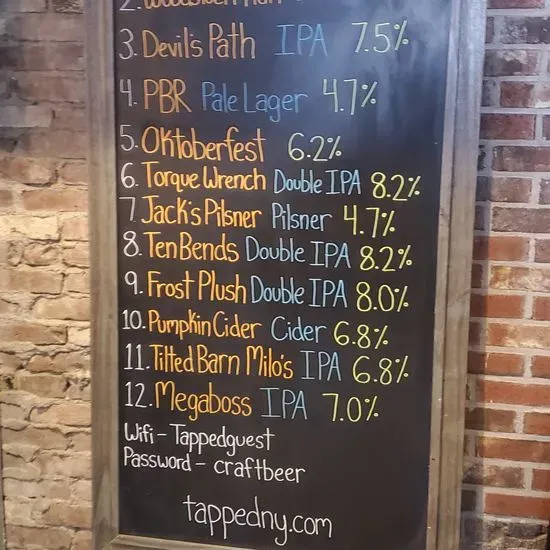 3. Devil's Path IPA 7.5%
4. PBR Pale Lager 4.7%
5. Oktoberfest 6.2%
6. Torque Wrench Double IPA 8.2%
7. Jack's Pilsner Pilsner 4.7%
8. Ten Bends Double IPA 8.2%
9. Frost Plush Double IPA 8.0%
10. Pumpkin Cider Cider 6.8%
11. Tilted Barn Milo's IPA 6.8%
12. Megaboss IPA 7.0%
Wifi - Tappedguest
Password - craftbeer
tappedny.com